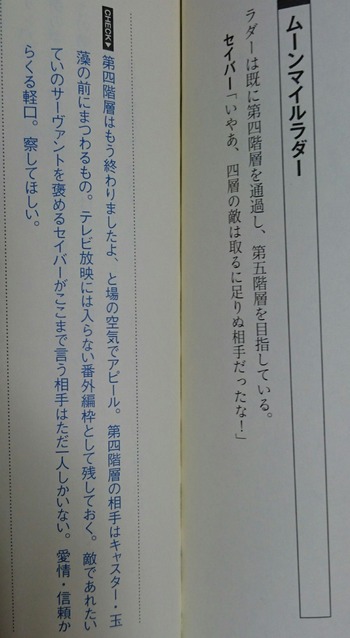 ムーンマイルラダー
ラダーは既に第四階層を通過し、第五階層を目指している。
セイバー「いやあ、四層の敵は取るに足りぬ相手だったな！」
CHECK▼ 第四階層はもう終わりましたよ、と場の空気でアピール。第四階層の相手はキャスター・玉
藻の前にまつわるもの。テレビ放映には入らない番外編枠として残しておく。敵であれたい
ていのサーヴァントを褒めるセイバーがここまで言う相手はただ一人しかいない。愛情・信頼か
らくる軽口。察してほしい。